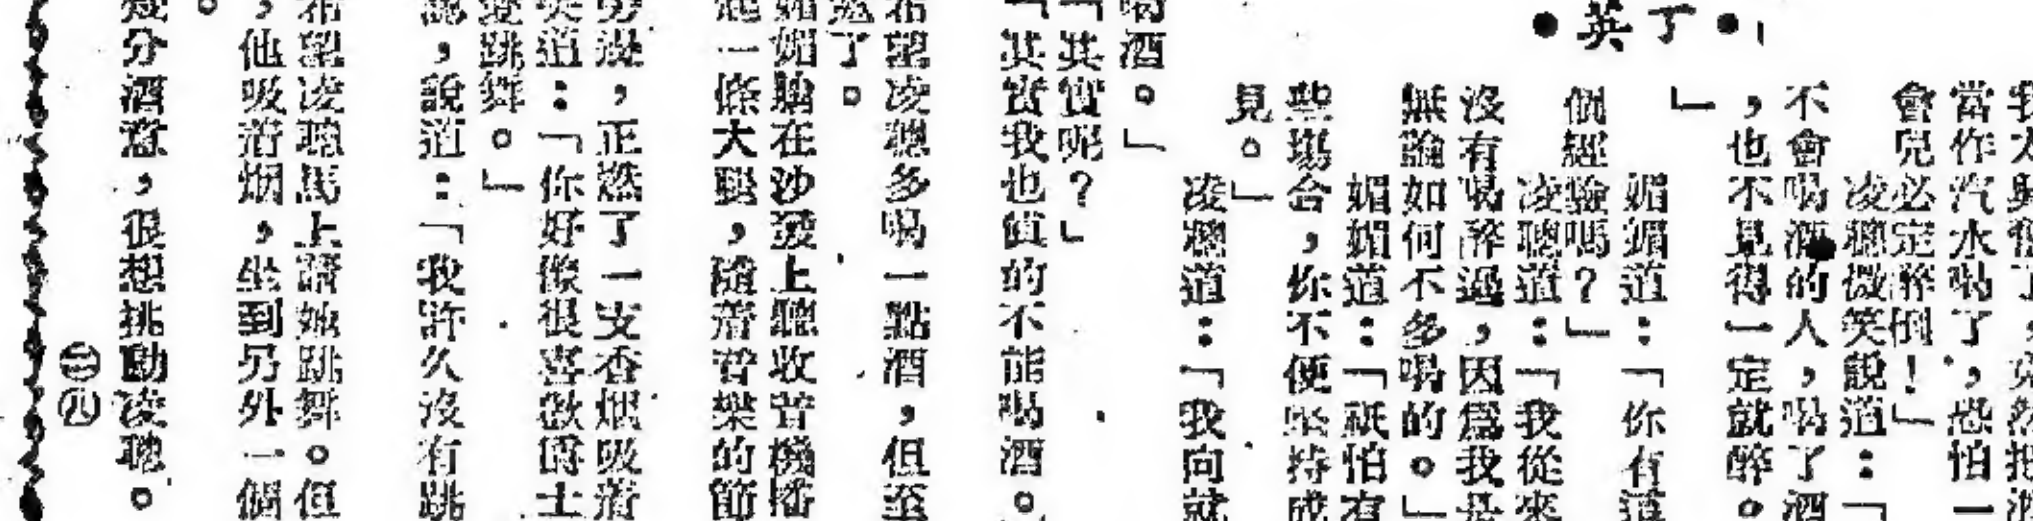 ●英丁●
當作汽水喝了，恐怕一
會兒必定醉倒！」
凌聰微笑說道：「
不會喝酒的人，喝了酒
，也不見得一定就醉。
」
媚媚道：「你有這
個經驗嗎？」
凌聰道：「我從來
沒有喝醉過，因爲我是
無論如何不多喝的。」
媚媚道：「祇怕有
些塲合，你不便堅持成
見。」
凌聰道：「我向就
喝酒。」
「其實呢？」
「其實我也眞的不能喝酒。
希望凌聰多喝一點酒，但至
了。
媚媚躺在沙發上聽收音機播
一條大腿，隨着音樂的節
，正燃了一支香烟吸着
笑道：「你好像很喜歡爵士
跳舞。」
，說道：「我許久沒有跳
希望凌聰馬上請她跳舞。但
，他吸着烟，坐到另外一個
。
幾分酒意，很想挑動凌聰。
㊁㊈